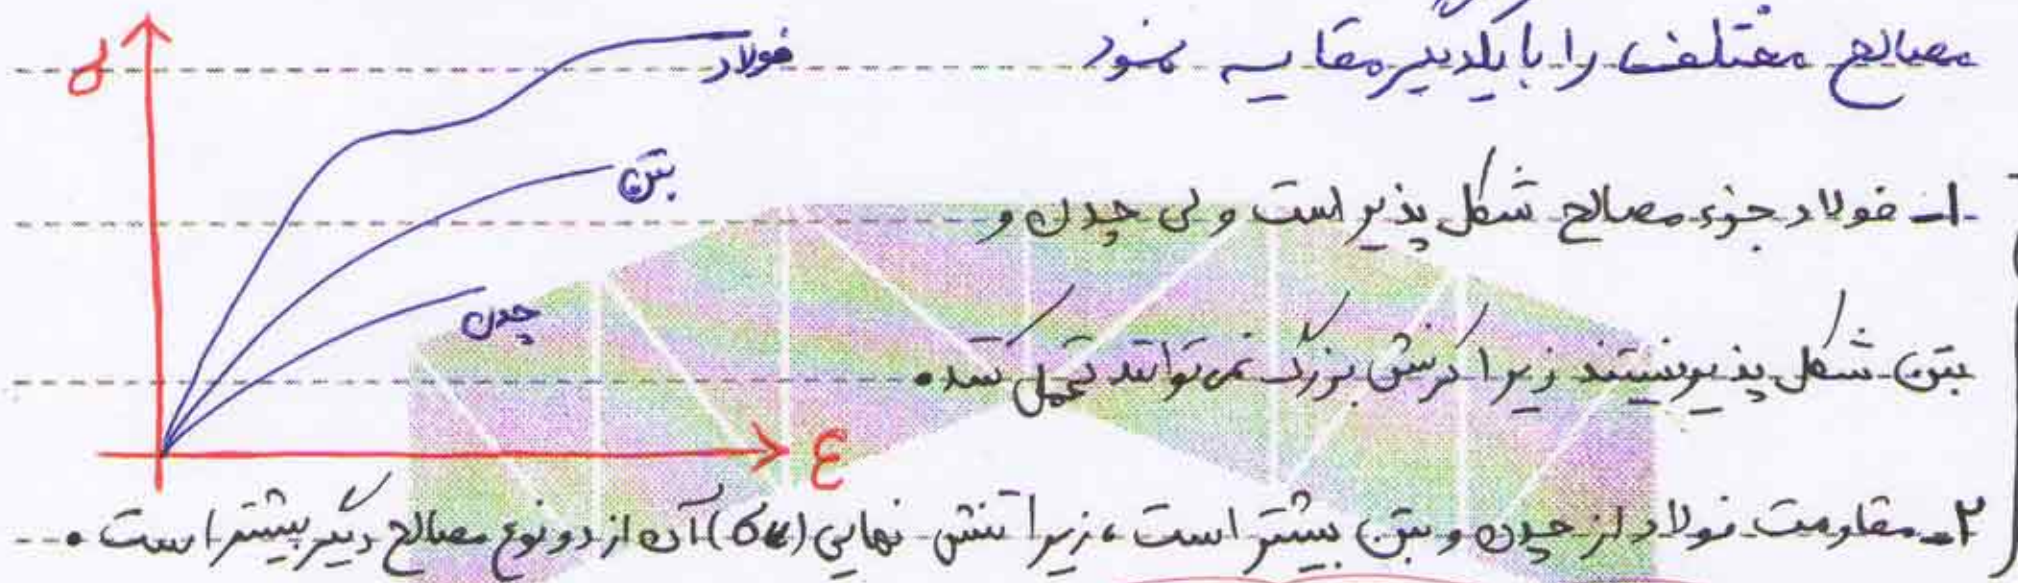 مصالح مختلف را با یکدیگر مقایسه نمود
σ
فولاد
بتن
چدن
ε
۱- فولاد جزء مصالح شکل پذیر است ولی چدن و
بتن شکل پذیر نیستند زیرا کرنش بزرگ نمی توانند تحمل کنند.
۲- مقاومت فولاد از چدن و بتن بیشتر است، زیرا تنش نهایی (σu) آن از دو نوع مصالح دیگر بیشتر است.